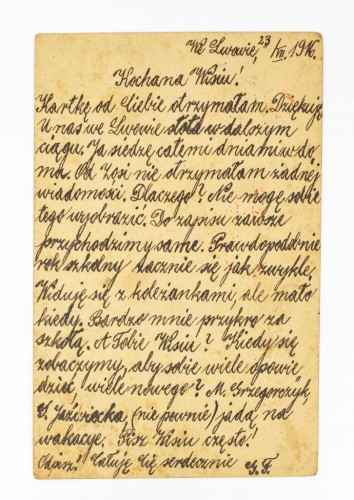 We Lwowie, 23/VII. 1916.
Kochana Wisiu!
Kartkę od Ciebie otrzymałam. Dziękuję.
U nas we Lwowie słota w dalszym
ciągu. Ja siedzę całemi dniami w do
ma. Od Zosi nie otrzymałam żadnej
wiadomości. Dlaczego? Nie mogę sobie
tego wyobrazić. Do zapisu zawsze
przychodzimy same. Prawdopodobnie
rok szkolny zacznie się jak zwykle.
Widuję się z koleżankami, ale mało
kiedy. Bardzo mnie przykro za
szkołą. A Tobie Wisiu? Kiedy się
zobaczymy, aby sobie wiele opowie
dzieć wiele nowego? M. Grzegorczyk,
(nie pewnie) jadą na
wakacye. Pisz Wisiu często!
Odpisz! Całuję Cię serdecznie